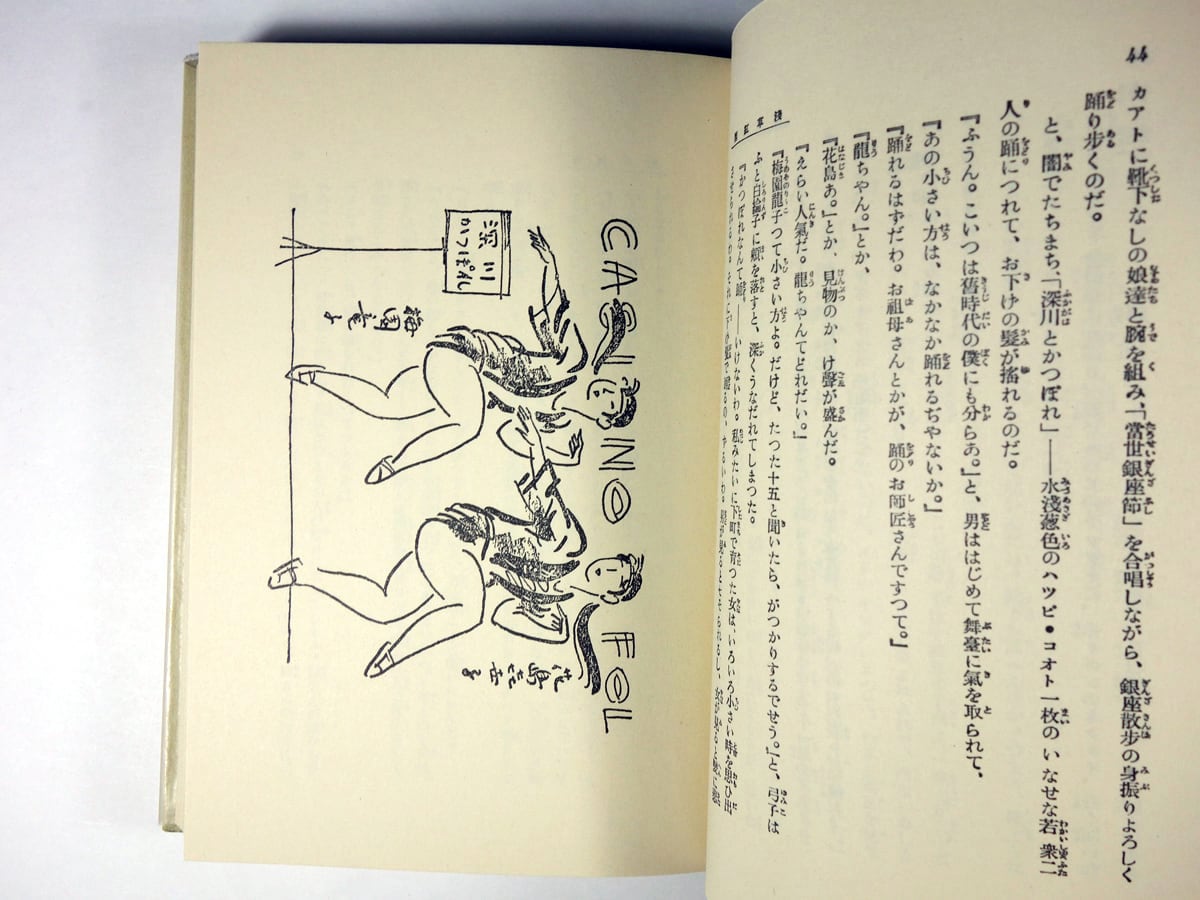 44
カアトに靴下なしの娘達と腕を組み、「當世銀座節」を合唱しながら、銀座散歩の身振りよろしく
踊り歩くのだ。
と、闇でたちまち、「深川とかつぽれ」――水淺葱色のハツピ・コオト一枚のいなせな若衆二
人の踊につれて、お下げの髮が搖れるのだ。
『ふうん。こいつは舊時代の僕にも分らあ。』と、男ははじめて舞臺に氣を取られて、
『あの小さい方は、なかなか踊れるぢやないか。』
『踊れるはずだわ。お祖母さんとかが、踊のお師匠さんですつて。』
『龍ちやん。』とか、
『花島あ。』とか、見物のかけ聲が盛んだ。
『えらい人氣だ。龍ちやんてどれだい。』
『梅園龍子つて小さい方よ。だけど、たつた十五と聞いたら、がつかりするでせう。』と、弓子は
ふと白綸子に頬を落すと、深くうなだれてしまつた。
『かつぽれなんて踊。――いけないわ。私みたいに下町で育つた女は、いろいろ小さい時を思ひ出
淺草紅團
CASINO FOLL
深川
かつぽれ
梅園竜子
花島喜世子